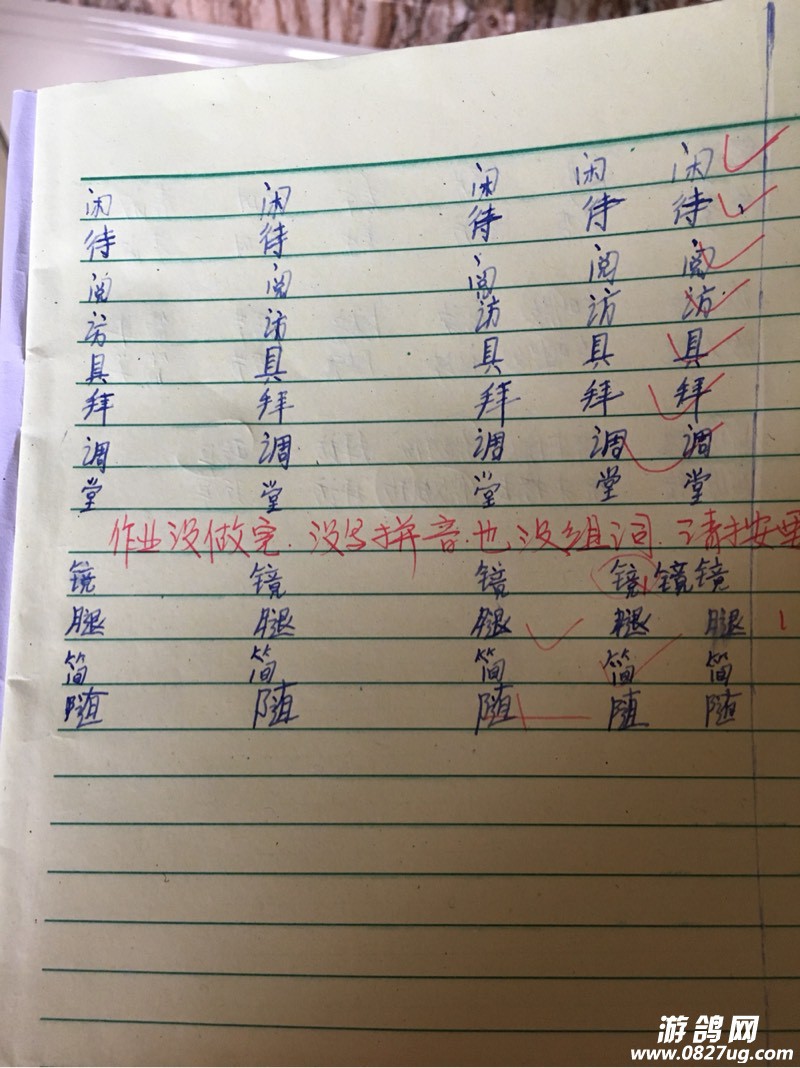 闲 闲 闲 闲 闲
待 待 待 待 待
阅 阅 阅 阅 阅
访 访 访 访 访
具 具 具 具 具
拜 拜 拜 拜 拜
调 调 调 调 调
堂 堂 堂 堂 堂
作业没做完.没写拼音.也没组词.请按要
镜 镜 镜 镜 镜 镜
腿 腿 腿 腿 腿
简 简 简 简 简
随 随 随 随 随
游鸽网
www.0827ug.com